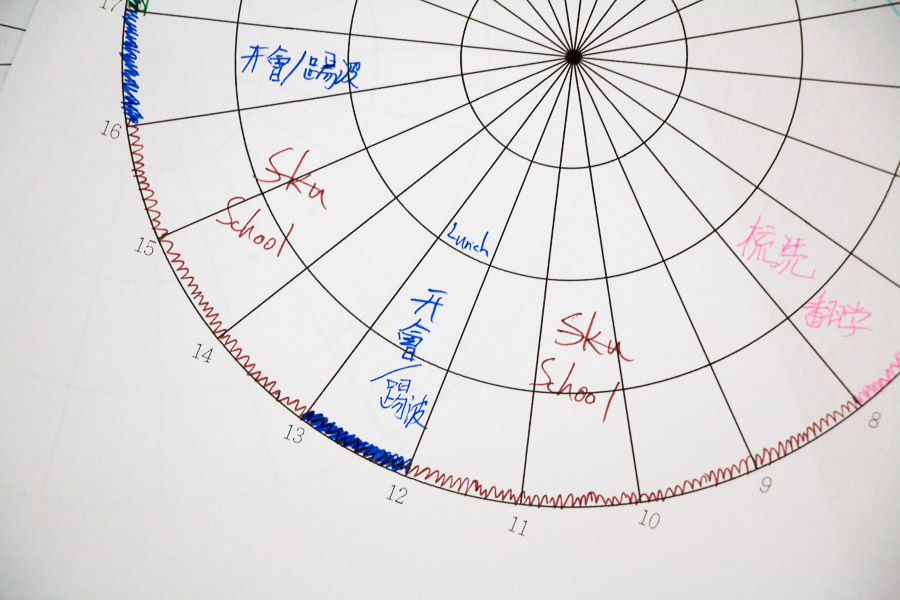 17
开會/踢波
16
Sku
School
15
Lunch
梳洗
翻学
开
會
/
踢波
Sku
School
14
13
8
12
9
11
10